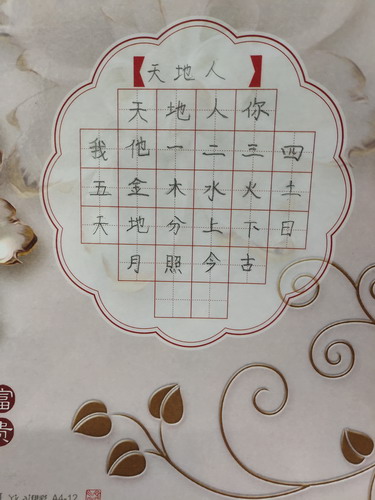 【天地人】
天地人你
我他一二三四
五金木水火土
天地分上下日
月照今古
富
贵
A4-12